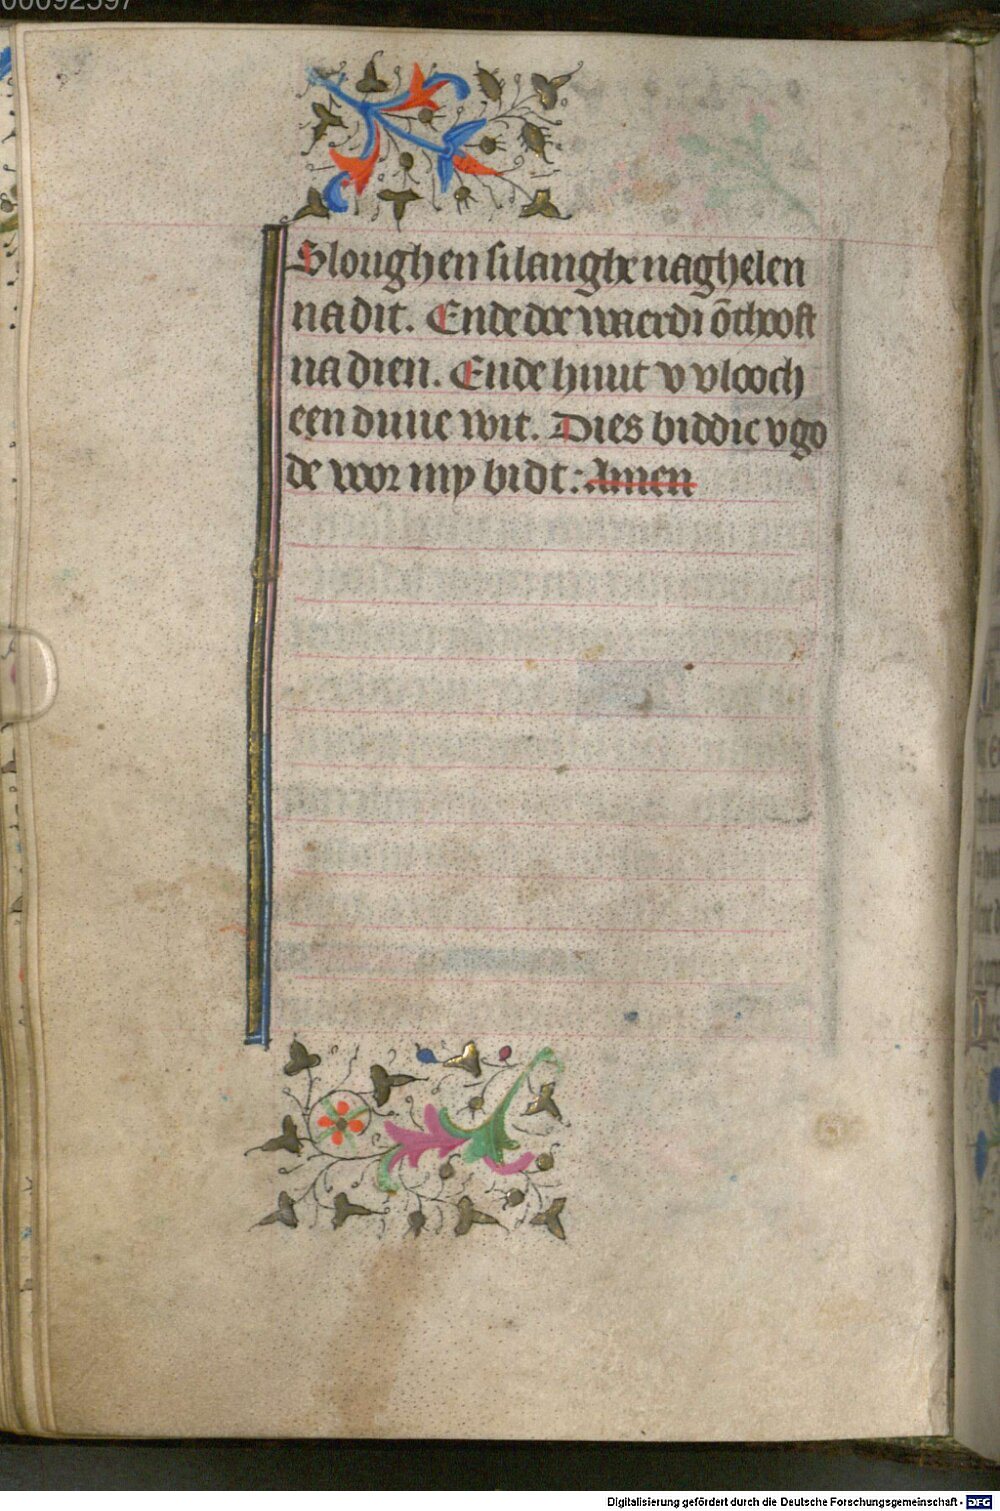 00092597
Sloughen si langhe naghelen
na dit. Ende doe waerdi õthooft
na dien. Ende huut v vlooch
een duue wit. Dies biddic v go
de voor my bidt: Amen
Digitalisierung gefördert durch die Deutsche Forschungsgemeinschaft - DFG